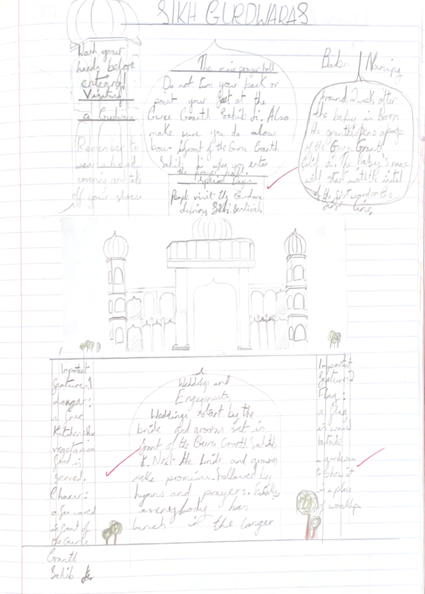 SIKH GURDWARAS
Wash your
hands before
entering
Visiting
a Gurdwara
Remember to
wear a head
covering and take
off your shoes
The main prayer hall
Do not turn your back or
point your feet at the
Guru Granth Sahib Ji. Also
make sure you do a low
bow infront of the Guru Granth
Sahib Ji when you enter
the prayer hall.
Special Days
People visit the Gurdwara
during Sikh festivals
Baby Naming
Around 2 weeks after
the baby is born
the opens a page
of the Guru Granth
Sahib Ji. The baby's name
will start with the initial
of the first word on the
Important
feature 1
Langar:
a free
Kitchen
vegetarian
food is
served.
Chaur:
a fan waved
in front of
the Guru
Granth
Sahib
Weddings and
Engagements
Weddings start by the
bride and groom sat in
front of the Guru Granth Sahib
Ji. Next the bride and groom
make promises followed by
hymns and prayers.
everybody has
lunch in the langar
Important
feature 2
Flag:
a flag
is
outside
a gurdwara
to show it
a place
of worship